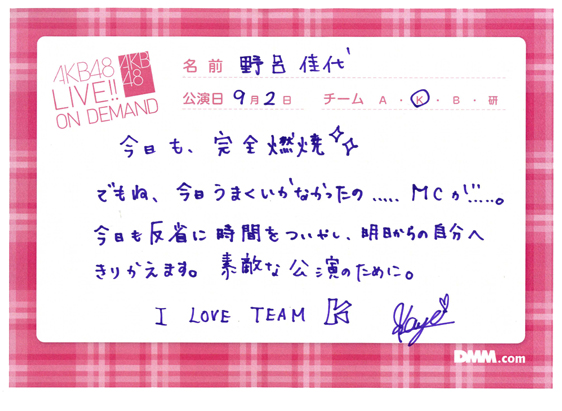 AKB48
LIVE!!
ON DEMAND
AKB
48
名前 野呂佳代
公演日 9月2日 チーム A・K・B・研
今日も、完全燃焼
でもね、今日うまくいかなかったの.....MCが.....。
今日も反省に時間をついやし、明日からの自分へ
きりかえます。素敵な公演のために。
I LOVE TEAM K
Kayo
DMM.com